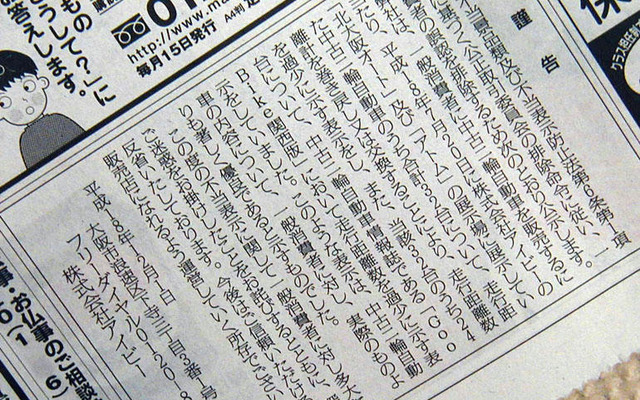 うして?」に
お答えします。
http://www.ma
毎月15日発行
謹告
当景品類及び不当表示防止法第6条第1項
に基づく公正取引委員会の排除命令に従い、一
者の誤認を排除するため次のとおり公示します。
弊社は、一般消費者に中古二輪自動車を販売するに
たり、平成18年1月20日に株式会社アイビーの
北大阪オート」及び「アトム」の展示場に展示してい
た中古二輪自動車のうち合計32台について、走行距
離計を巻き戻し又は交換することにより、走行距離数
を過少に示す表示をし、また、当該32台のうち24
台について、中古二輪自動車情報誌である「Goo
Bike関西版」において走行距離数を過少に示す表
示をしていました。このような表示は、中古二輪自動
車の内容について、一般消費者に対し、実際のものよ
りも著しく優良であると示すものでした。
この度の不当表示に関して一般消費者に対し多大
ご迷惑をお掛けしたことをお詫びするとともに、
反省いたしております。今後はご信頼いただけ
販売店になれるよう運営していく所存でござい
平成18年2月1日
大阪市浪速区下寺三丁目3番1号
フリーダイヤル012018
株式会社アイビー
お仏事のご相談